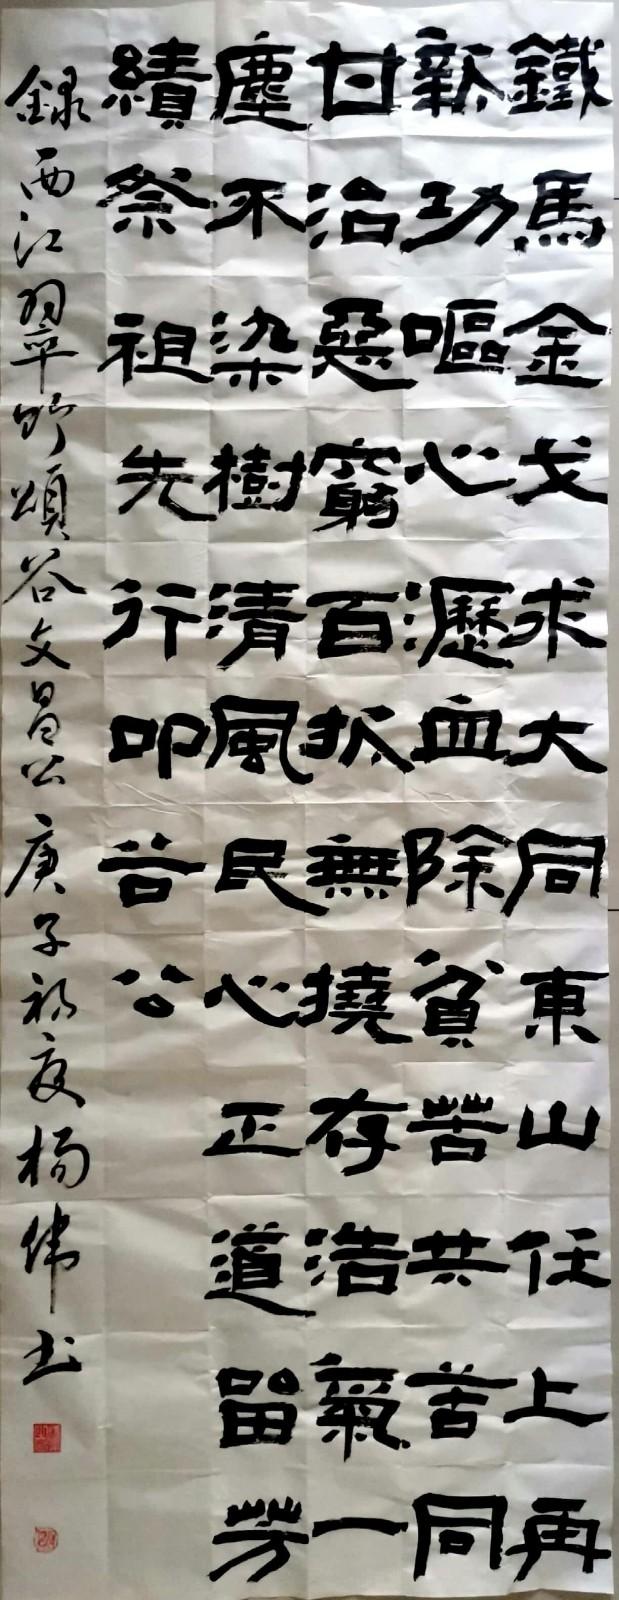 鐵馬金戈求大同東山任上再
新功嘔心瀝血除貧苦共苦同
甘治惡窮百折無撓存浩氣一
塵不染樹清風民心正道留芳
績祭祖先行叩谷公
錄西江翠野頌谷文昌公庚子初夏楊偉書